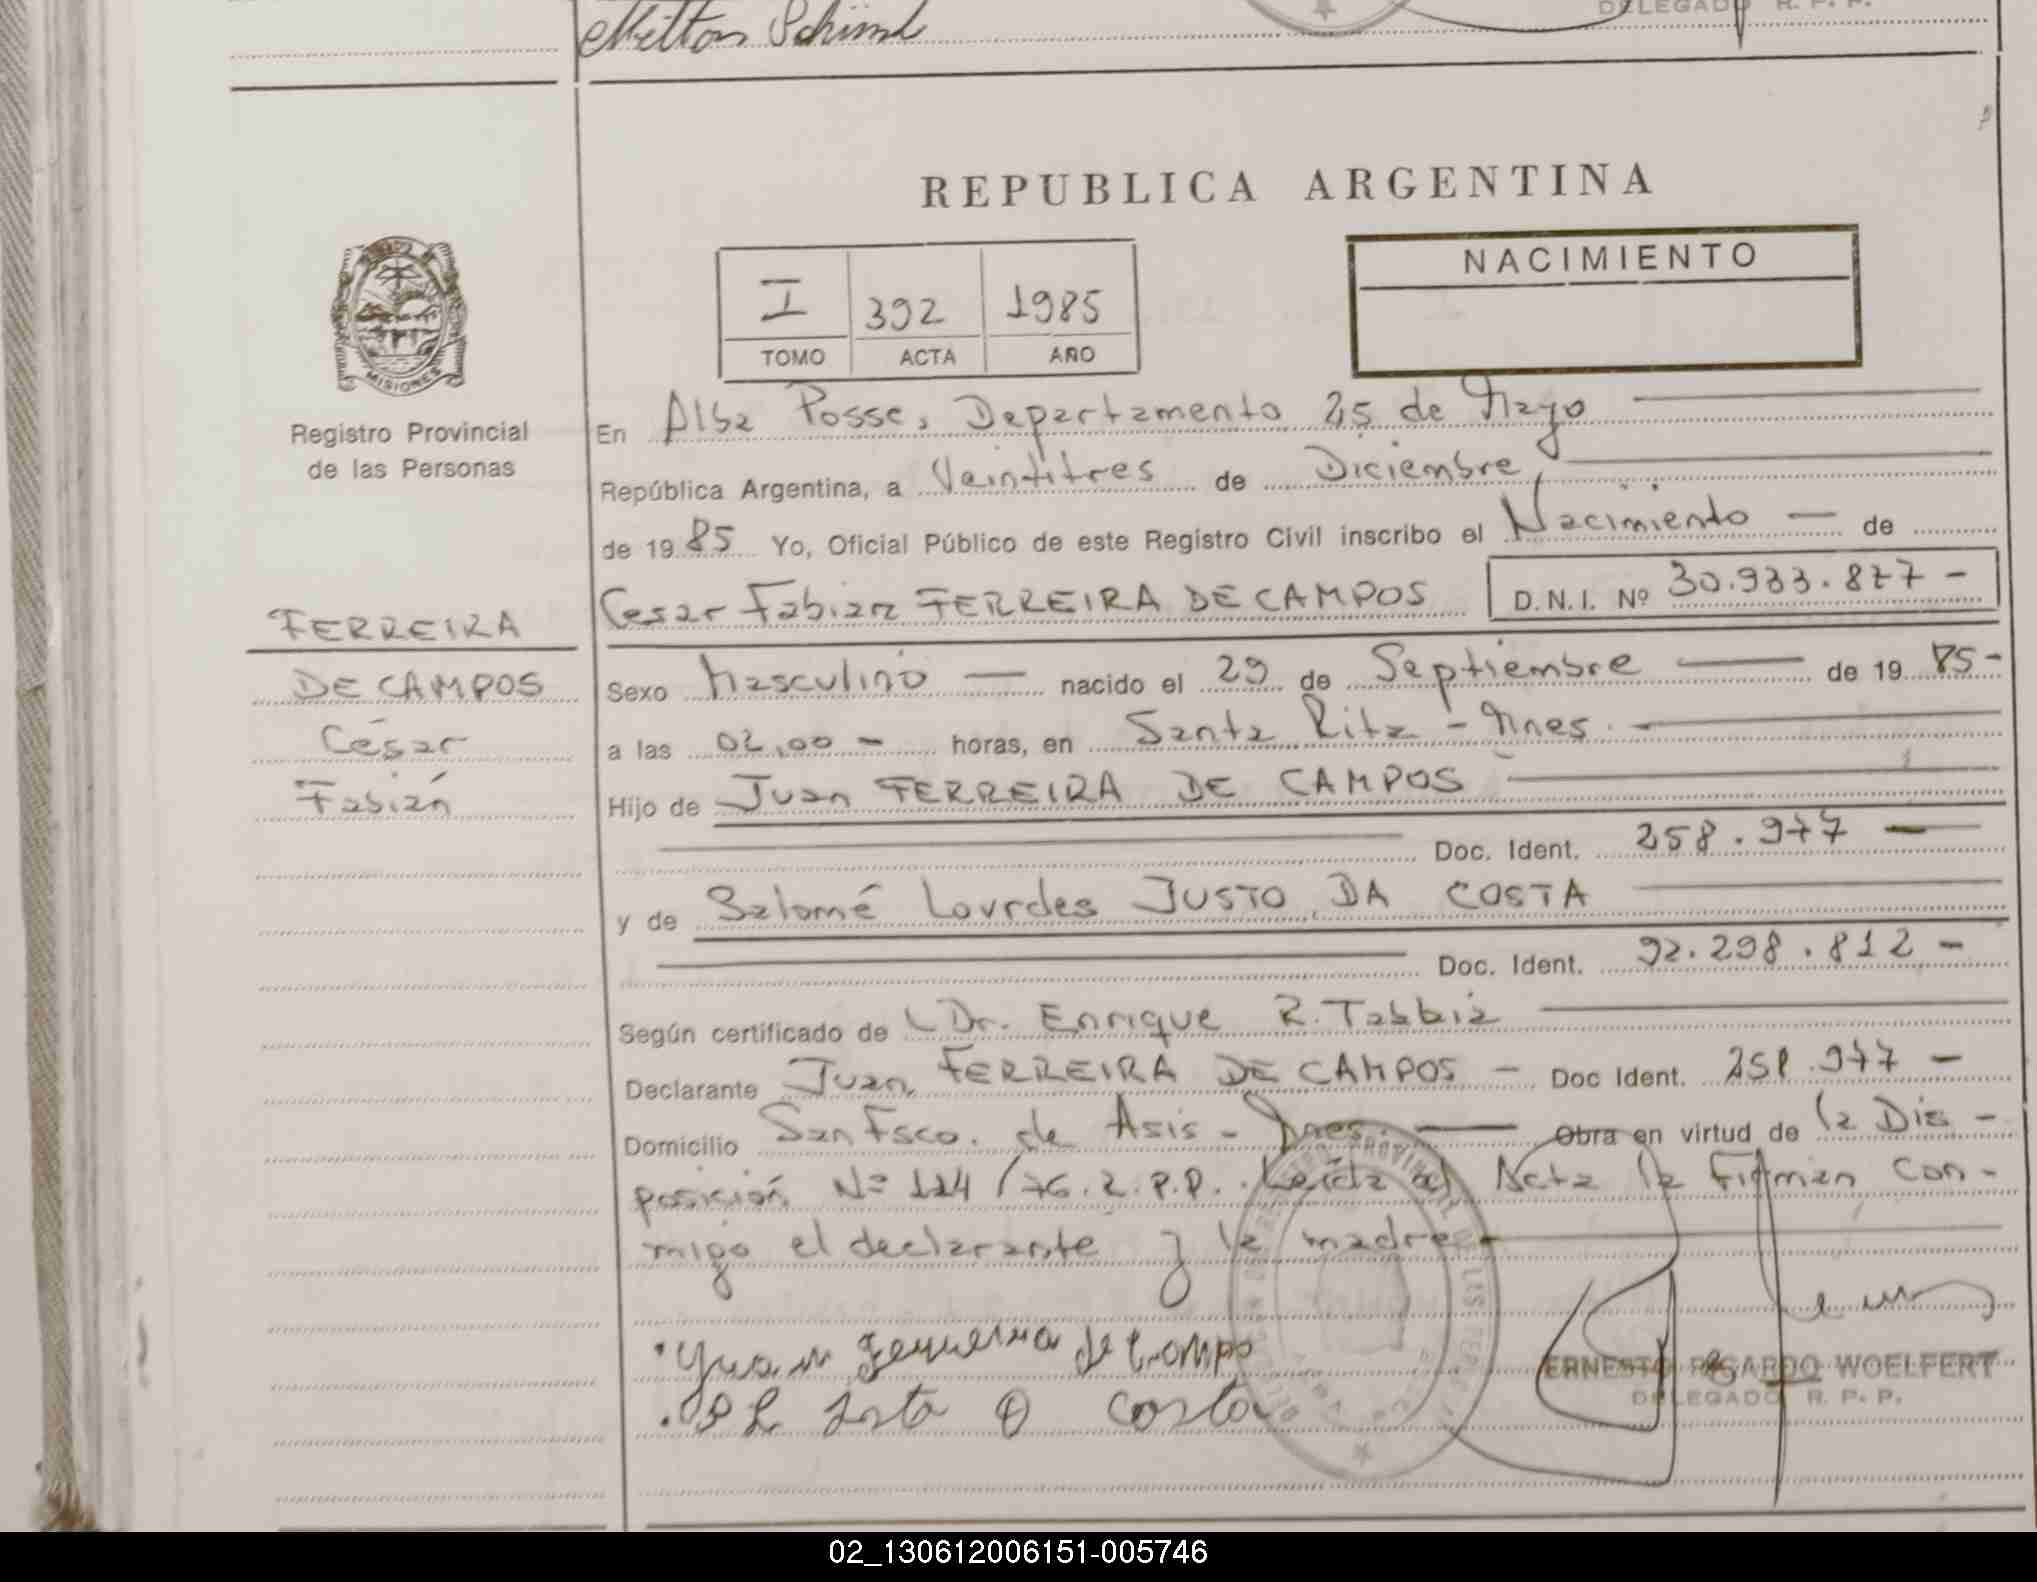 Milton Schimd
DELEGADO R. P. P.
REPUBLICA ARGENTINA
I 392 1985
TOMO ACTA AÑO
NACIMIENTO
MISIONES
Registro Provincial
de las Personas
FERREIRA
DE CAMPOS
César
Fabián
En Alba Posse, Departamento 25 de Mayo
República Argentina, a Veintitres de Diciembre
de 1985 Yo, Oficial Público de este Registro Civil inscribo el Nacimiento — de
Cesar Fabian FERREIRA DE CAMPOS D.N.I. Nº 30.933.877 -
Sexo Masculino — nacido el 29 de Septiembre — de 1985-
a las 02,00 - horas, en Santa Rita - Mnes. -
Hijo de Juan FERREIRA DE CAMPOS
Doc. Ident. 258.977 —
y de Salomé Lourdes JUSTO DA COSTA
Doc. Ident. 92.298.812 -
Según certificado de Dr. Enrique R. Tabbia
Declarante Juan FERREIRA DE CAMPOS - Doc Ident. 258.977 -
Domicilio San Fsco. de Asis - Mnes. — Obra en virtud de la Dis -
posición Nº 114/76. R.P.P. Leída el Acta la Firman con-
migo el declarante y la madre -
Juan Ferreira de Campo
Costa
ERNESTO RICARDO WOELFERT
DELEGADO R. P. P.
02_130612006151-005746